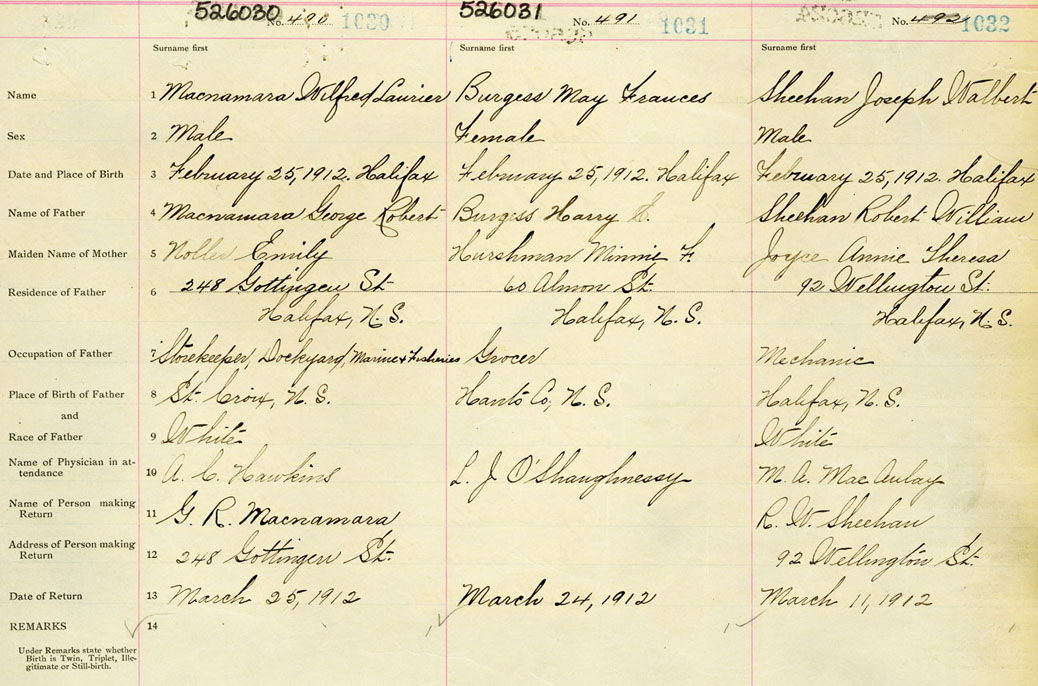 526030 No. 490 1030 526031 No. 491 1031 No. 492 1032
Surname first Surname first Surname first
Name 1 Macnamara Wilfred Laurier Burgess May Frances Sheehan Joseph Walbert
Sex 2 Male Female Male
Date and Place of Birth 3 February 25, 1912. Halifax February 25, 1912. Halifax February 25, 1912. Halifax
Name of Father 4 Macnamara George Robert Burgess Harry Sheehan Robert William
Maiden Name of Mother 5 Emily Hurshman Minnie F. Joyce Annie Theresa
Residence of Father 6 248 Gottingen St. 60 Almon St. 92 Wellington St.
Halifax, N.S. Halifax, N.S. Halifax, N.S.
Occupation of Father 7 Storekeeper, Dockyard, Marine & Fisheries Grocer Mechanic
Place of Birth of Father 8 St. Croix, N.S. Hants Co, N.S. Halifax, N.S.
and
Race of Father 9 White White
Name of Physician in at-
tendance 10 A. C. Hawkins L. J. O'Shaughnessy M. A. MacAulay
Name of Person making
Return 11 G. R. Macnamara R. W. Sheehan
Address of Person making
Return 12 248 Gottingen St. 92 Wellington St.
Date of Return 13 March 25, 1912 March 24, 1912 March 11, 1912
REMARKS 14
Under Remarks state whether
Birth is Twin, Triplet, Ille-
gitimate or Still-birth.